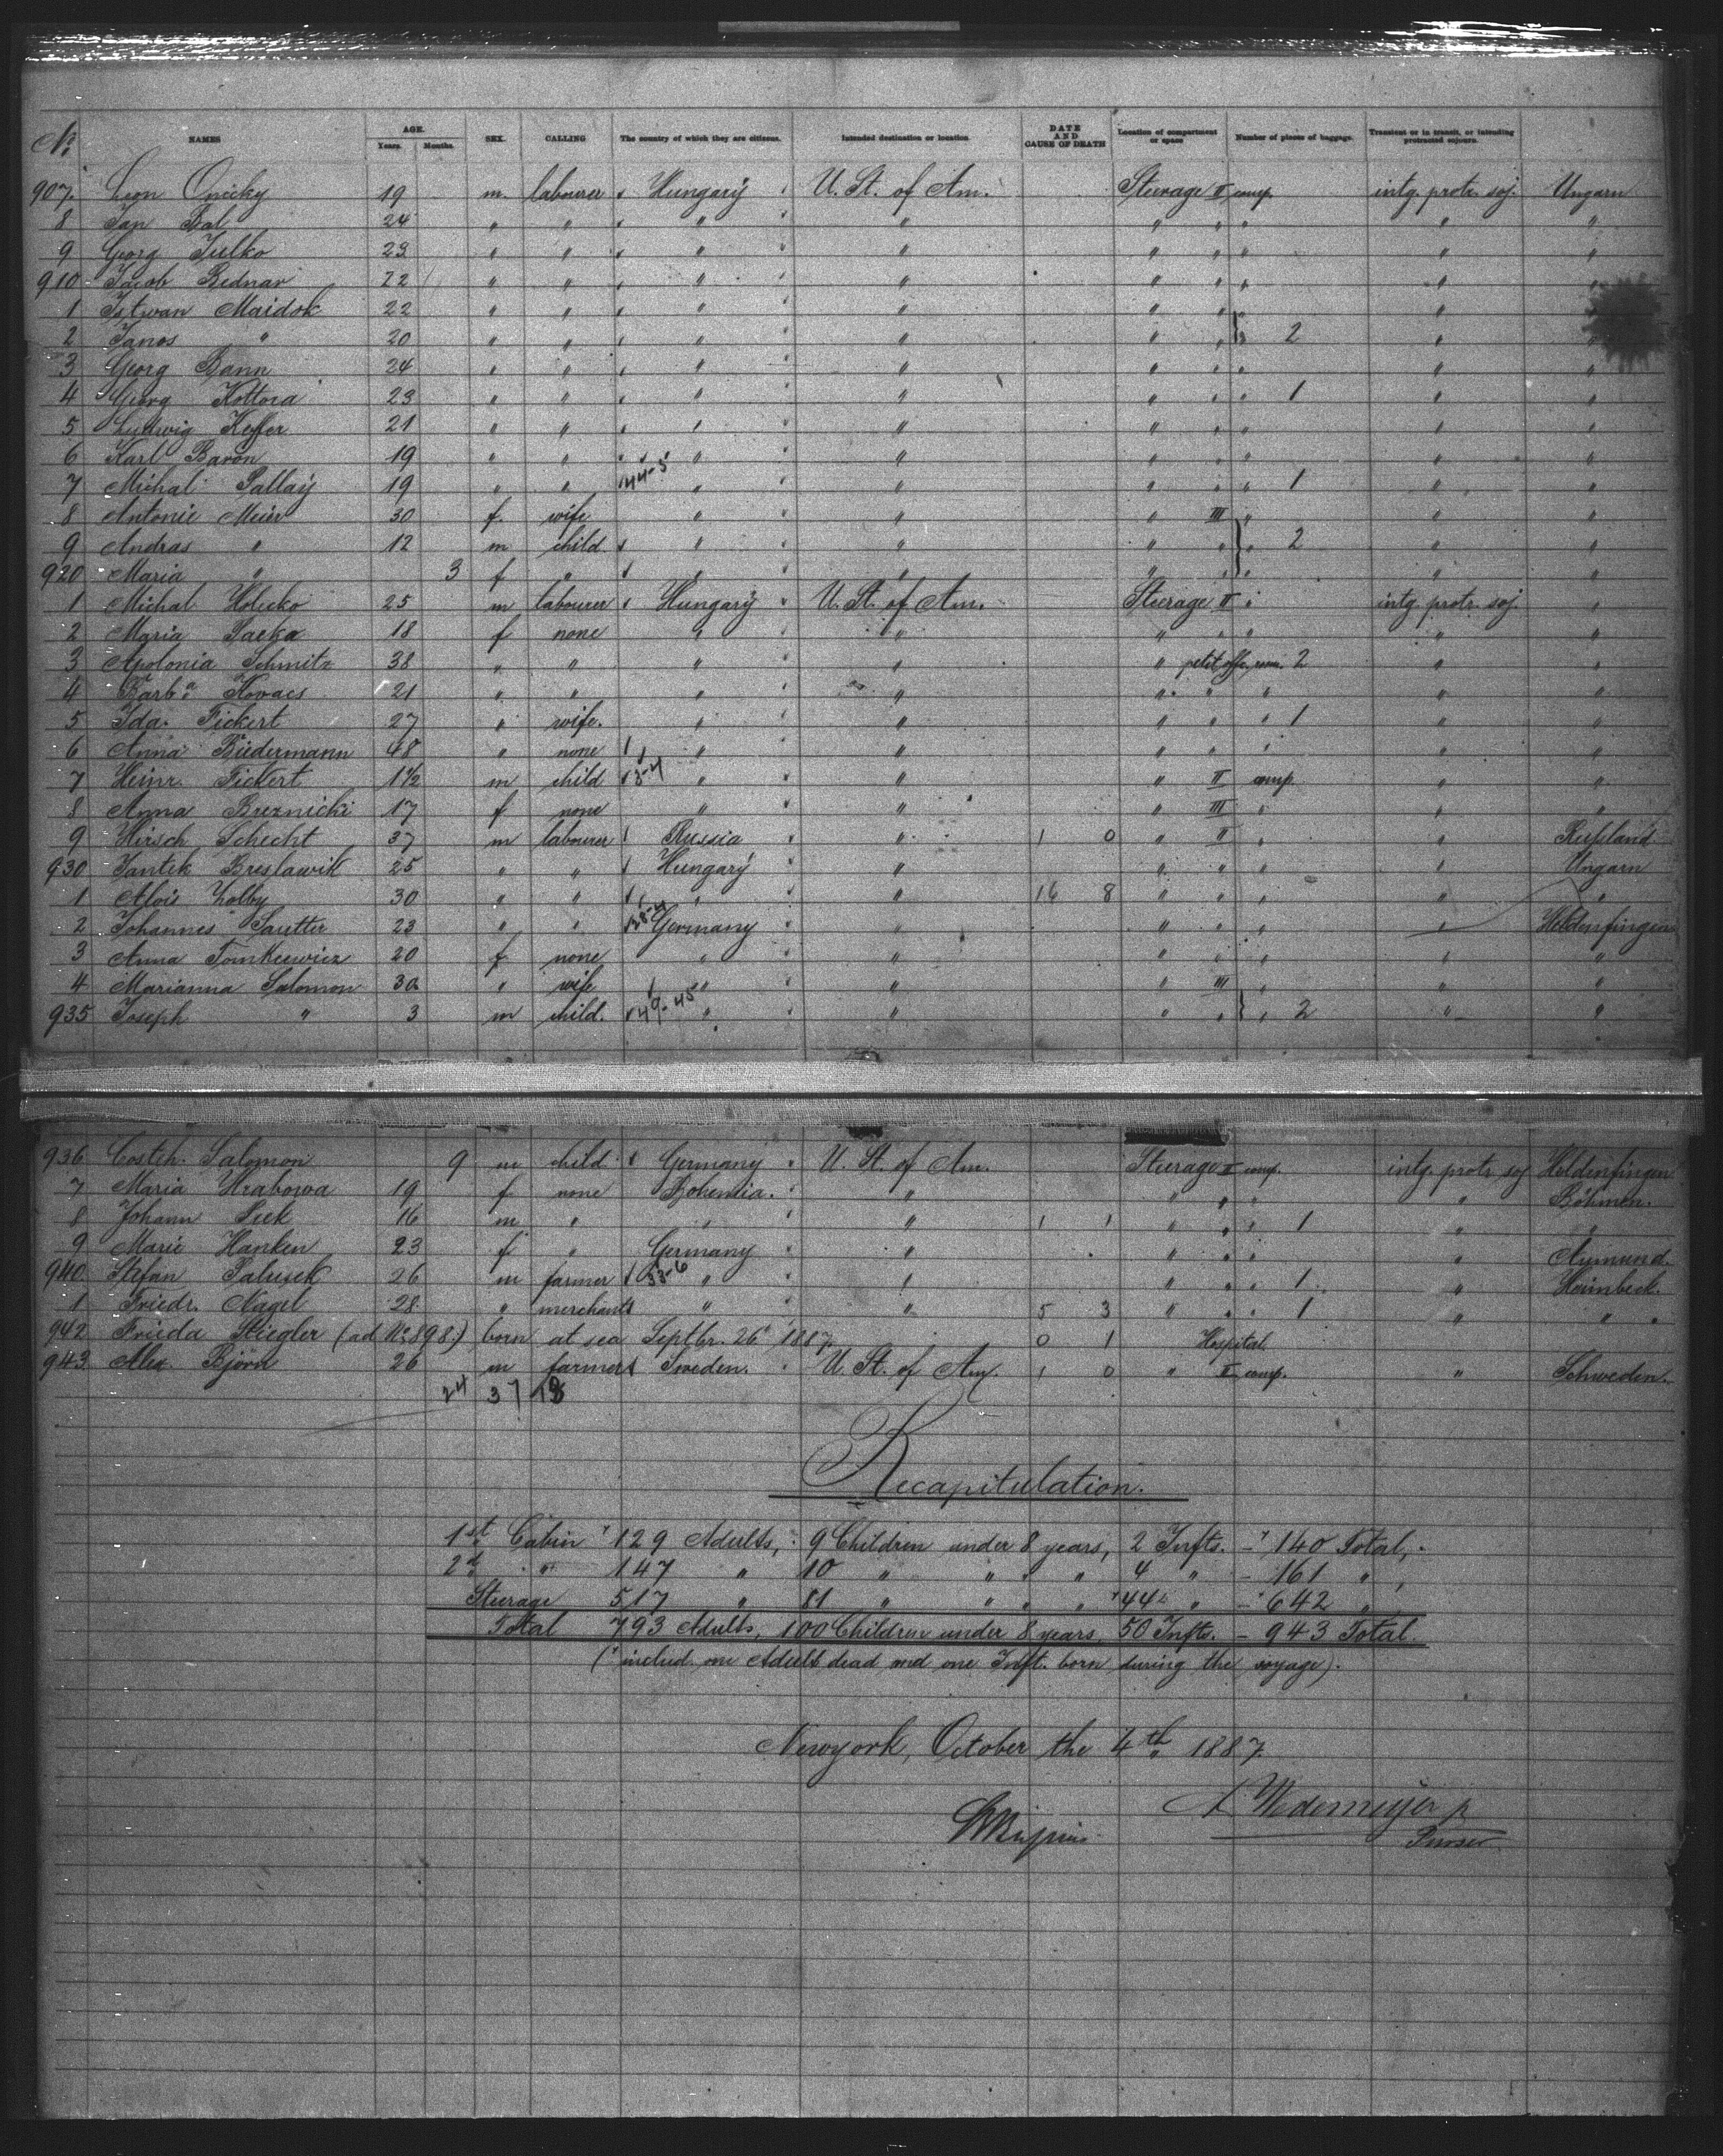 No. NAMES AGE. Years. Months. SEX. CALLING The country of which they are citizens. Intended destination or location. DATE AND CAUSE OF DEATH Location of compartment or space Number of pieces of baggage. Transient or in transit, or intending protracted sojourn.
907. Leon Onicky 19 m. labourer Hungary U. St. of Am. Steerage II comp. intg. protr. soj. Ungarn
8 Jan Bal 24 " " " " " " " " "
9 Georg Julko 23 " " " " " " " " "
910 Jacob Bednar 22 " " " " " " " " "
1 Istwan Maidok 22 " " " " " " " " "
2 Janos " 20 " " " " " " " 2 " "
3 Georg Bann 24 " " " " " " " " "
4 Georg Kottora 23 " " " " " " " 1 " "
5 Ludwig Keffer 21 " " " " " " " " "
6 Karl Baron 19 " " " " " " " " "
7 Michal Pallay 19 " " 44-5 " " " " " 1 " "
8 Antonie Meier 30 f. wife " " " III " " "
9 Andras " 12 m child " " " " " 2 " "
920 Maria " 3 f " " " " " " " "
1 Michal Holecko 25 m labourer Hungary U. St. of Am. Steerage II " intg. protr. soj. "
2 Maria Sacka 18 f none " " " " " " "
3 Apolonia Schmitz 38 " " " " " petit offc. com. 2 " "
4 Barba Kovacs 21 " " " " " " " " "
5 Ida Fickert 27 " wife. " " " " " 1 " "
6 Anna Biedermann 48 " none " " " " " " "
7 Heinr. Fickert 1 1/2 m child 3-4 " " " II comp. " "
8 Anna Breznicki 17 f none " " " III " " "
9 Hirsch Schecht 37 m labourer Russia " 1 0 " II " " Rußland
930 Jantek Breslawik 25 " " Hungary " " " " " Ungarn
1 Alois Zolby 30 " " " " 16 8 " " " " "
2 Johannes Sautter 23 " " 38-4 Germany " " " " " Heldenfingen
3 Anna Tomkiewicz 20 f none " " " " " " "
4 Marianna Salomon 30 " wife " " " III " " "
935 Joseph " 3 m child. 49-45 " " " " " 2 " "
936 Salomon 9 m child Germany U. St. of Am. Steerage II comp. intg. protr. soj Heldenfingen
7 Maria Hrabowa 19 f none Bohemia. " " " " " Böhmen.
8 Johann Sick 16 m " " " 1 1 " " " 1 " "
9 Marie Hanken 23 f " Germany " " " " " Aumund.
940 Stefan Palusek 26 m farmer 33-6 " " " " " 1 " Heimbeck.
1 Friedr. Nagel 28 " merchants " " 5 3 " " " 1 " "
942 Frieda Stiegler (ad No. 898.) born at sea Septbr. 26t 1887. 0 1 Hospital
943 Alex. Björn 26 m farmer Sweden. U. St. of Am. 1 0 " II comp. " Schweden.
24 37 18
Recapitulation.
1st Cabin 129 Adults, 9 Children under 8 years, 2 Infts. - 140 Total,
2d " 147 " 10 " " " " 4 " - 161 "
Steerage 517 " 81 " " " " 44 " - 642 "
Total 793 Adults, 100 Children under 8 years, 50 Infts. - 943 Total
(includ. one Adult dead and one Inft. born during the voyage).
Newyork, October the 4th 1887.
A Wedemeyer p
Purser